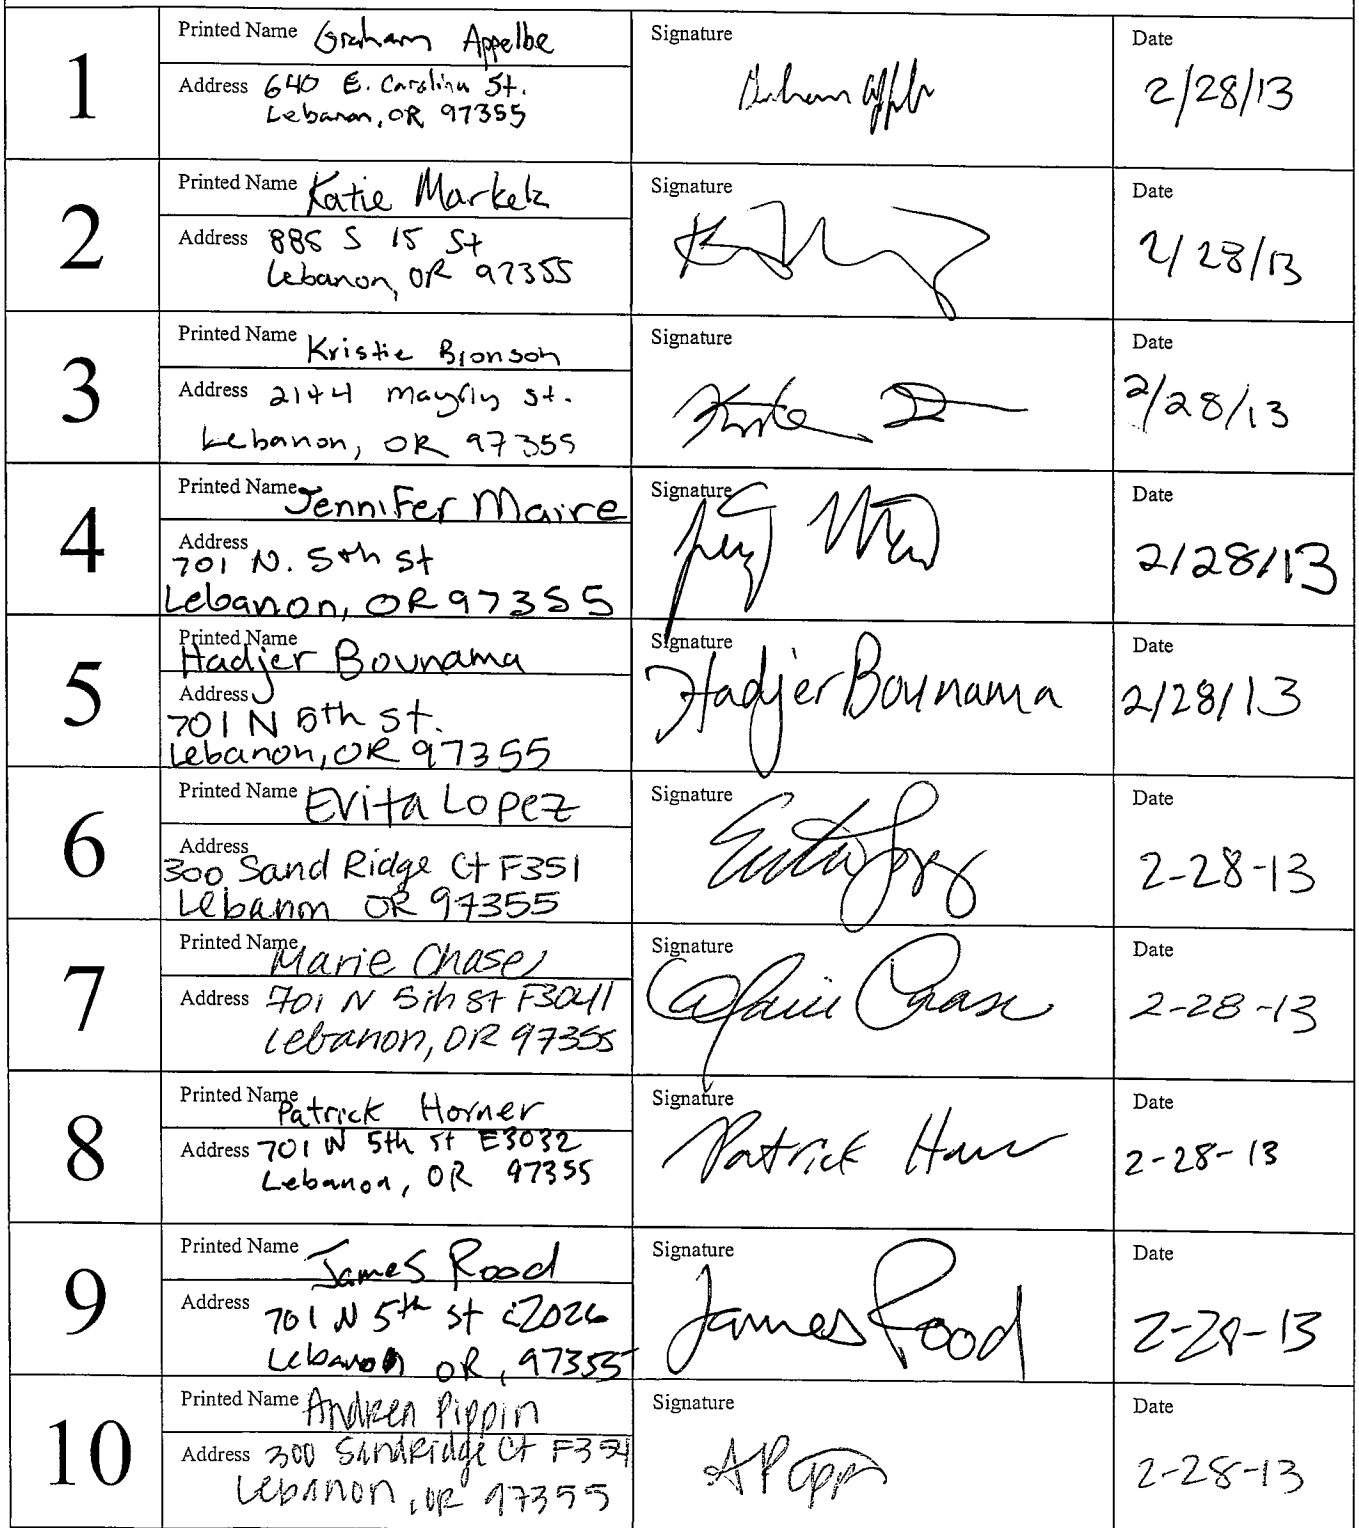 1
Printed Name Graham Appelbe
Address 640 E. Carolina St.
Lebanon, OR 97355
Signature
Date
2/28/13
2
Printed Name Katie Markelz
Address 885 S 15 St
Lebanon, OR 97355
Signature
Date
2/28/13
3
Printed Name Kristie Bronson
Address 2144 Mayfly St.
Lebanon, OR 97355
Signature
Date
2/28/13
4
Printed Name Jennifer Maire
Address
701 N. 5th St
Lebanon, OR 97355
Signature
Date
2/28/13
5
Printed Name
Hadjer Bounama
Address
701 N 5th St.
Lebanon, OR 97355
Signature
Hadjer Bounama
Date
2/28/13
6
Printed Name Evita Lopez
Address
300 Sand Ridge Ct F351
Lebanon OR 97355
Signature
Evita Lopez
Date
2-28-13
7
Printed Name Marie Chase
Address 701 N 5th St F3041
Lebanon, OR 97355
Signature
Chase
Date
2-28-13
8
Printed Name Patrick Horner
Address 701 N 5th St E3032
Lebanon, OR 97355
Signature
Patrick
Date
2-28-13
9
Printed Name James Rood
Address 701 N 5th St
Lebanon OR, 97355
Signature
James Rood
Date
2-28-13
10
Printed Name Andrea Pippin
Address 300 SandRidge Ct F354
Lebanon, OR 97355
Signature
Date
2-28-13